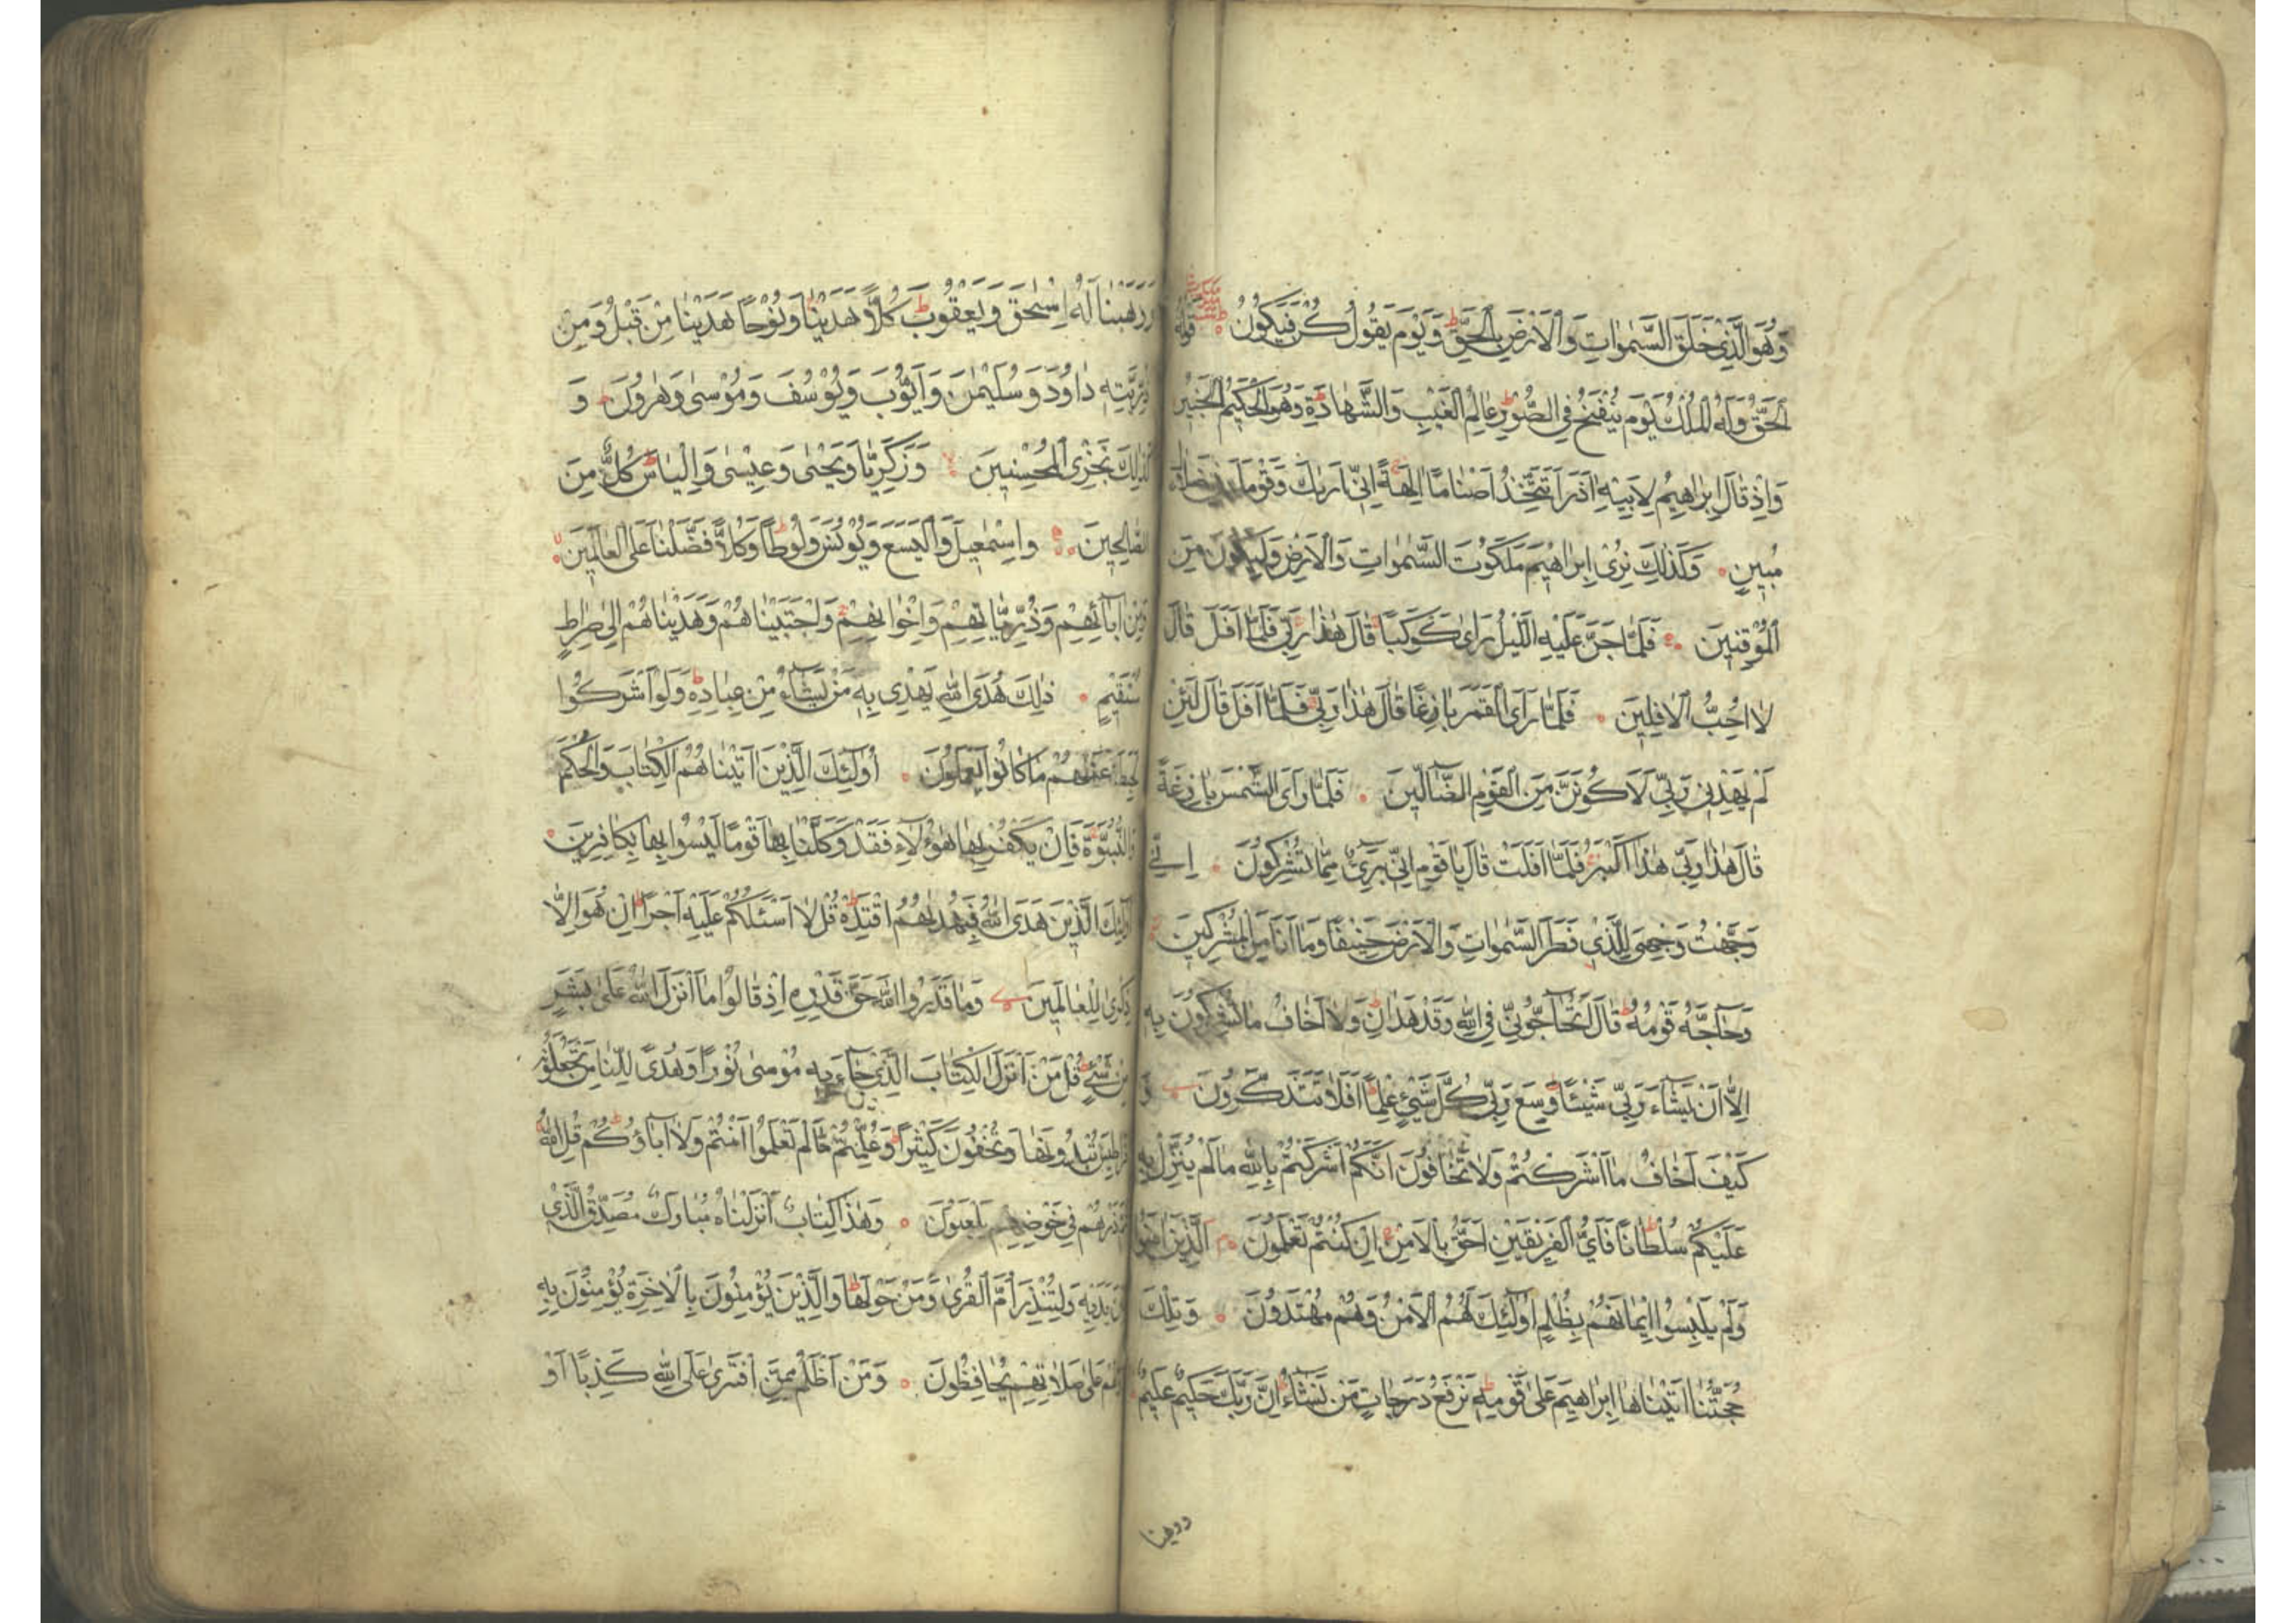 وَهُوَ الَّذِي خَلَقَ السَّمٰوَاتِ وَالْاَرْضَ بِالْحَقِّ وَيَوْمَ يَقُولُ كُنْ فَيَكُونُ قَوْلُهُ
الْحَقُّ وَلَهُ الْمُلْكُ يَوْمَ يُنْفَخُ فِي الصُّوْرِ عَالِمُ الْغَيْبِ وَالشَّهَادَةِ وَهُوَ الْحَكِيْمُ الْخَبِيْرُ
وَاِذْ قَالَ اِبْرَاهِيْمُ لِاَبِيْهِ اٰذَرَ اَتَتَّخِذُ اَصْنَامًا اٰلِهَةً اِنِّي اَرٰىكَ وَقَوْمَكَ فِي ضَلَالٍ
مُبِيْنٍ وَكَذٰلِكَ نُرِيْ اِبْرَاهِيْمَ مَلَكُوْتَ السَّمٰوَاتِ وَالْاَرْضِ وَلِيَكُوْنَ مِنَ
الْمُوْقِنِيْنَ فَلَمَّا جَنَّ عَلَيْهِ اللَّيْلُ رَاٰى كَوْكَبًا قَالَ هٰذَا رَبِّي فَلَمَّا اَفَلَ قَالَ
لَا اُحِبُّ الْاٰفِلِيْنَ فَلَمَّا رَاَى الْقَمَرَ بَازِغًا قَالَ هٰذَا رَبِّي فَلَمَّا اَفَلَ قَالَ لَئِنْ
لَمْ يَهْدِنِي رَبِّي لَاَكُوْنَنَّ مِنَ الْقَوْمِ الضَّالِّيْنَ فَلَمَّا رَاَى الشَّمْسَ بَازِغَةً
قَالَ هٰذَا رَبِّي هٰذَا اَكْبَرُ فَلَمَّا اَفَلَتْ قَالَ يَا قَوْمِ اِنِّي بَرِيْءٌ مِمَّا تُشْرِكُوْنَ اِنِّي
وَجَّهْتُ وَجْهِيَ لِلَّذِي فَطَرَ السَّمٰوَاتِ وَالْاَرْضَ حَنِيْفًا وَمَا اَنَا مِنَ الْمُشْرِكِيْنَ
وَحَاجَّهُ قَوْمُهُ قَالَ اَتُحَاجُّوْنِّي فِي اللّٰهِ وَقَدْ هَدَانِ وَلَا اَخَافُ مَا تُشْرِكُوْنَ بِهِ
اِلَّا اَنْ يَشَاءَ رَبِّي شَيْئًا وَسِعَ رَبِّي كُلَّ شَيْءٍ عِلْمًا اَفَلَا تَتَذَكَّرُوْنَ وَ
كَيْفَ اَخَافُ مَا اَشْرَكْتُمْ وَلَا تَخَافُوْنَ اَنَّكُمْ اَشْرَكْتُمْ بِاللّٰهِ مَا لَمْ يُنَزِّلْ بِهِ
عَلَيْكُمْ سُلْطَانًا فَاَيُّ الْفَرِيْقَيْنِ اَحَقُّ بِالْاَمْنِ اِنْ كُنْتُمْ تَعْلَمُوْنَ اَلَّذِيْنَ اٰمَنُوْا
وَلَمْ يَلْبِسُوْا اِيْمَانَهُمْ بِظُلْمٍ اُولٰئِكَ لَهُمُ الْاَمْنُ وَهُمْ مُهْتَدُوْنَ وَتِلْكَ
حُجَّتُنَا اٰتَيْنَاهَا اِبْرَاهِيْمَ عَلٰى قَوْمِهِ نَرْفَعُ دَرَجَاتٍ مَنْ نَشَاءُ اِنَّ رَبَّكَ حَكِيْمٌ عَلِيْمٌ
ووهبنا
وَوَهَبْنَا لَهُ اِسْحٰقَ وَيَعْقُوْبَ كُلًّا هَدَيْنَا وَنُوْحًا هَدَيْنَا مِنْ قَبْلُ وَمِنْ
ذُرِّيَّتِهِ دَاوُدَ وَسُلَيْمٰنَ وَاَيُّوْبَ وَيُوْسُفَ وَمُوْسٰى وَهٰرُوْنَ وَ
كَذٰلِكَ نَجْزِي الْمُحْسِنِيْنَ وَزَكَرِيَّا وَيَحْيٰى وَعِيْسٰى وَاِلْيَاسَ كُلٌّ مِنَ
الصَّالِحِيْنَ وَاِسْمٰعِيْلَ وَالْيَسَعَ وَيُوْنُسَ وَلُوْطًا وَكُلًّا فَضَّلْنَا عَلَى الْعَالَمِيْنَ
وَمِنْ اٰبَائِهِمْ وَذُرِّيَّاتِهِمْ وَاِخْوَانِهِمْ وَاجْتَبَيْنَاهُمْ وَهَدَيْنَاهُمْ اِلٰى صِرَاطٍ
مُسْتَقِيْمٍ ذٰلِكَ هُدَى اللّٰهِ يَهْدِي بِهِ مَنْ يَشَاءُ مِنْ عِبَادِهِ وَلَوْ اَشْرَكُوْا
لَحَبِطَ عَنْهُمْ مَا كَانُوْا يَعْمَلُوْنَ اُولٰئِكَ الَّذِيْنَ اٰتَيْنَاهُمُ الْكِتَابَ وَالْحُكْمَ
وَالنُّبُوَّةَ فَاِنْ يَكْفُرْ بِهَا هٰؤُلَاءِ فَقَدْ وَكَّلْنَا بِهَا قَوْمًا لَيْسُوْا بِهَا بِكَافِرِيْنَ
اُولٰئِكَ الَّذِيْنَ هَدَى اللّٰهُ فَبِهُدٰىهُمُ اقْتَدِهْ قُلْ لَا اَسْئَلُكُمْ عَلَيْهِ اَجْرًا اِنْ هُوَ اِلَّا
ذِكْرٰى لِلْعَالَمِيْنَ وَمَا قَدَرُوا اللّٰهَ حَقَّ قَدْرِهِ اِذْ قَالُوْا مَا اَنْزَلَ اللّٰهُ عَلٰى بَشَرٍ
مِنْ شَيْءٍ قُلْ مَنْ اَنْزَلَ الْكِتَابَ الَّذِي جَاءَ بِهِ مُوْسٰى نُوْرًا وَهُدًى لِلنَّاسِ تَجْعَلُوْنَهُ
قَرَاطِيْسَ تُبْدُوْنَهَا وَتُخْفُوْنَ كَثِيْرًا وَعُلِّمْتُمْ مَا لَمْ تَعْلَمُوْا اَنْتُمْ وَلَا اٰبَاؤُكُمْ قُلِ اللّٰهُ
ثُمَّ ذَرْهُمْ فِي خَوْضِهِمْ يَلْعَبُوْنَ وَهٰذَا كِتَابٌ اَنْزَلْنَاهُ مُبَارَكٌ مُصَدِّقُ الَّذِي
بَيْنَ يَدَيْهِ وَلِتُنْذِرَ اُمَّ الْقُرٰى وَمَنْ حَوْلَهَا وَالَّذِيْنَ يُؤْمِنُوْنَ بِالْاٰخِرَةِ يُؤْمِنُوْنَ بِهِ
وَهُمْ عَلٰى صَلَاتِهِمْ يُحَافِظُوْنَ وَمَنْ اَظْلَمُ مِمَّنِ افْتَرٰى عَلَى اللّٰهِ كَذِبًا اَوْ